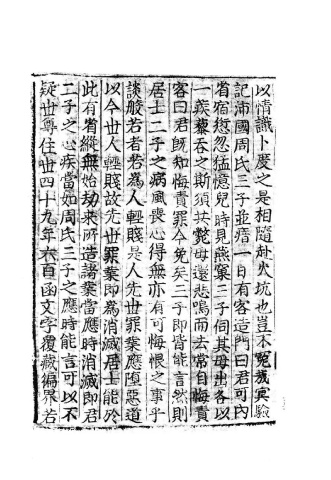 以情識卜度之是相隨赴火坑也豈不寃哉冥驗
記沛國周氏三子並瘖一日有客造門曰君可內
省宿愆忽猛憶兒時見燕窠三子伺其母出各以
一蒺藜吞之斯須共斃母還悲鳴而去常自悔責
客曰君既知悔責罪今免矣三子即皆能言然則
居士二子之病風喪心得無亦有可悔恨之事乎
談般若者若爲人輕賤是人先世罪業應墮惡道
以今世人輕賤故先世罪業即爲消滅居士能於
此有省縱無始劫來所造諸業當應時消滅即君
二子之心疾當如周氏三子之應時能言可以不
疑世尊住世四十九年六百函文字覆藏徧界若